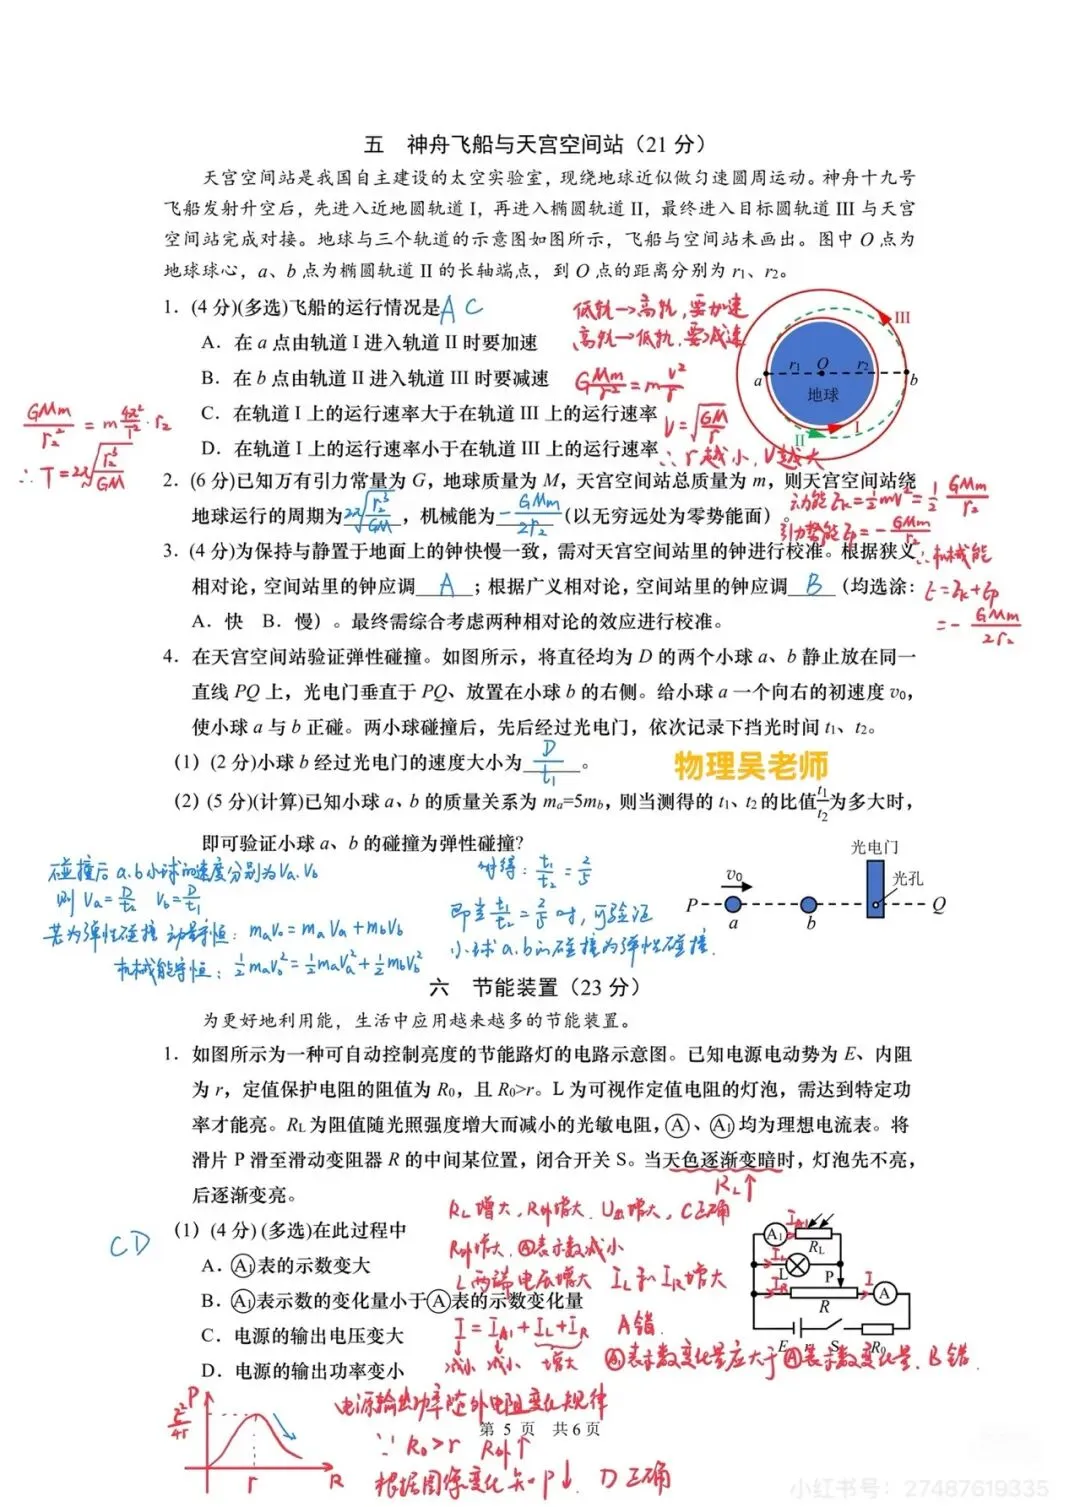 五 神舟飞船与天宫空间站（21 分）
天宫空间站是我国自主建设的太空实验室，现绕地球近似做匀速圆周运动。神舟十九号
飞船发射升空后，先进入近地圆轨道 I，再进入椭圆轨道 II，最终进入目标圆轨道 III 与天宫
空间站完成对接。地球与三个轨道的示意图如图所示，飞船与空间站未画出。图中 O 点为
地球球心，a、b 点为椭圆轨道 II 的长轴端点，到 O 点的距离分别为 r₁、r₂。
1. (4 分)(多选)飞船的运行情况是 AC
低轨→高轨，要加速
高轨→低轨，要减速
A．在 a 点由轨道 I 进入轨道 II 时要加速
B．在 b 点由轨道 II 进入轨道 III 时要减速
G Mm/r² = m v²/r
C．在轨道 I 上的运行速率大于在轨道 III 上的运行速率
V=√(GM/r)
D．在轨道 I 上的运行速率小于在轨道 III 上的运行速率
∴ r越小，V越大
III
a r₁ O r₂ b
地球
II I
GMm/r₂² = m 4π²/T² · r₂
∴ T=2π√(r₂³/GM)
2. (6 分)已知万有引力常量为 G，地球质量为 M，天宫空间站总质量为 m，则天宫空间站绕
地球运行的周期为 2π√(r₂³/GM) ，机械能为 -GMm/2r₂ (以无穷远处为零势能面）。
动能 Ek=½mv²=½ GMm/r₂
引力势能 Ep=-GMm/r₂
∴机械能
E=Ek+Ep
=-GMm/2r₂
3. (4 分)为保持与静置于地面上的钟快慢一致，需对天宫空间站里的钟进行校准。根据狭义
相对论，空间站里的钟应调 A ；根据广义相对论，空间站里的钟应调 B （均选涂：
A．快 B．慢）。最终需综合考虑两种相对论的效应进行校准。
4. 在天宫空间站验证弹性碰撞。如图所示，将直径均为 D 的两个小球 a、b 静止放在同一
直线 PQ 上，光电门垂直于 PQ、放置在小球 b 的右侧。给小球 a 一个向右的初速度 v₀，
使小球 a 与 b 正碰。两小球碰撞后，先后经过光电门，依次记录下挡光时间 t₁、t₂。
(1) (2 分)小球 b 经过光电门的速度大小为 D/t₁ 。
物理吴老师
(2) (5 分)(计算)已知小球 a、b 的质量关系为 mₐ=5m_b，则当测得的 t₁、t₂ 的比值 t₁/t₂ 为多大时，
即可验证小球 a、b 的碰撞为弹性碰撞?
碰撞后 a.b小球的速度分别为Va.Vb
则 Va=D/t₂ Vb=D/t₁
若为弹性碰撞 动量守恒：maV₀=maVa+mbVb
机械能守恒：½maV₀²=½maVa²+½mbVb²
解得：t₁/t₂=2/5
即当 t₁/t₂=2/5 时，可验证
小球a.b的碰撞为弹性碰撞.
光电门
光孔
v₀
P a b Q
六 节能装置（23 分）
为更好地利用能，生活中应用越来越多的节能装置。
1. 如图所示为一种可自动控制亮度的节能路灯的电路示意图。已知电源电动势为 E、内阻
为 r，定值保护电阻的阻值为 R₀，且 R₀>r。L 为可视作定值电阻的灯泡，需达到特定功
率才能亮。R_L 为阻值随光照强度增大而减小的光敏电阻，Ⓐ、Ⓐ₁ 均为理想电流表。将
滑片 P 滑至滑动变阻器 R 的中间某位置，闭合开关 S。当天色逐渐变暗时，灯泡先不亮，
后逐渐变亮。
RL↑
(1) (4 分) (多选)在此过程中
CD
RL增大，R外增大．U外增大，C正确
A．Ⓐ₁表的示数变大
R外增大，Ⓐ表示数减小
L两端电压增大 IL和IR增大
B．Ⓐ₁表示数的变化量小于Ⓐ表的示数变化量
C．电源的输出电压变大
I=IA₁+IL+IR A错.
减小 减小 增大
Ⓐ₁表示数变化量应大于Ⓐ表示数变化量．B错.
D．电源的输出功率变小
A₁ IA₁ R_L
IL L P
IR R I A
E r S R₀
电源输出功率随外电阻变化规律
∵ R₀>r R外↑
根据图像变化知 P↓ D正确
P
E²/4r
r R
第 5 页 共 6 页
小红书号：27487619335